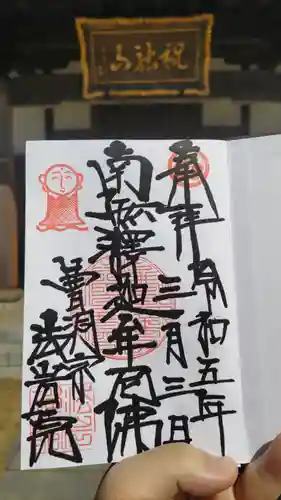 祝融山
奉拝
令和五年
三月三日
南無釋迦牟尼佛
曹洞宗
法音院